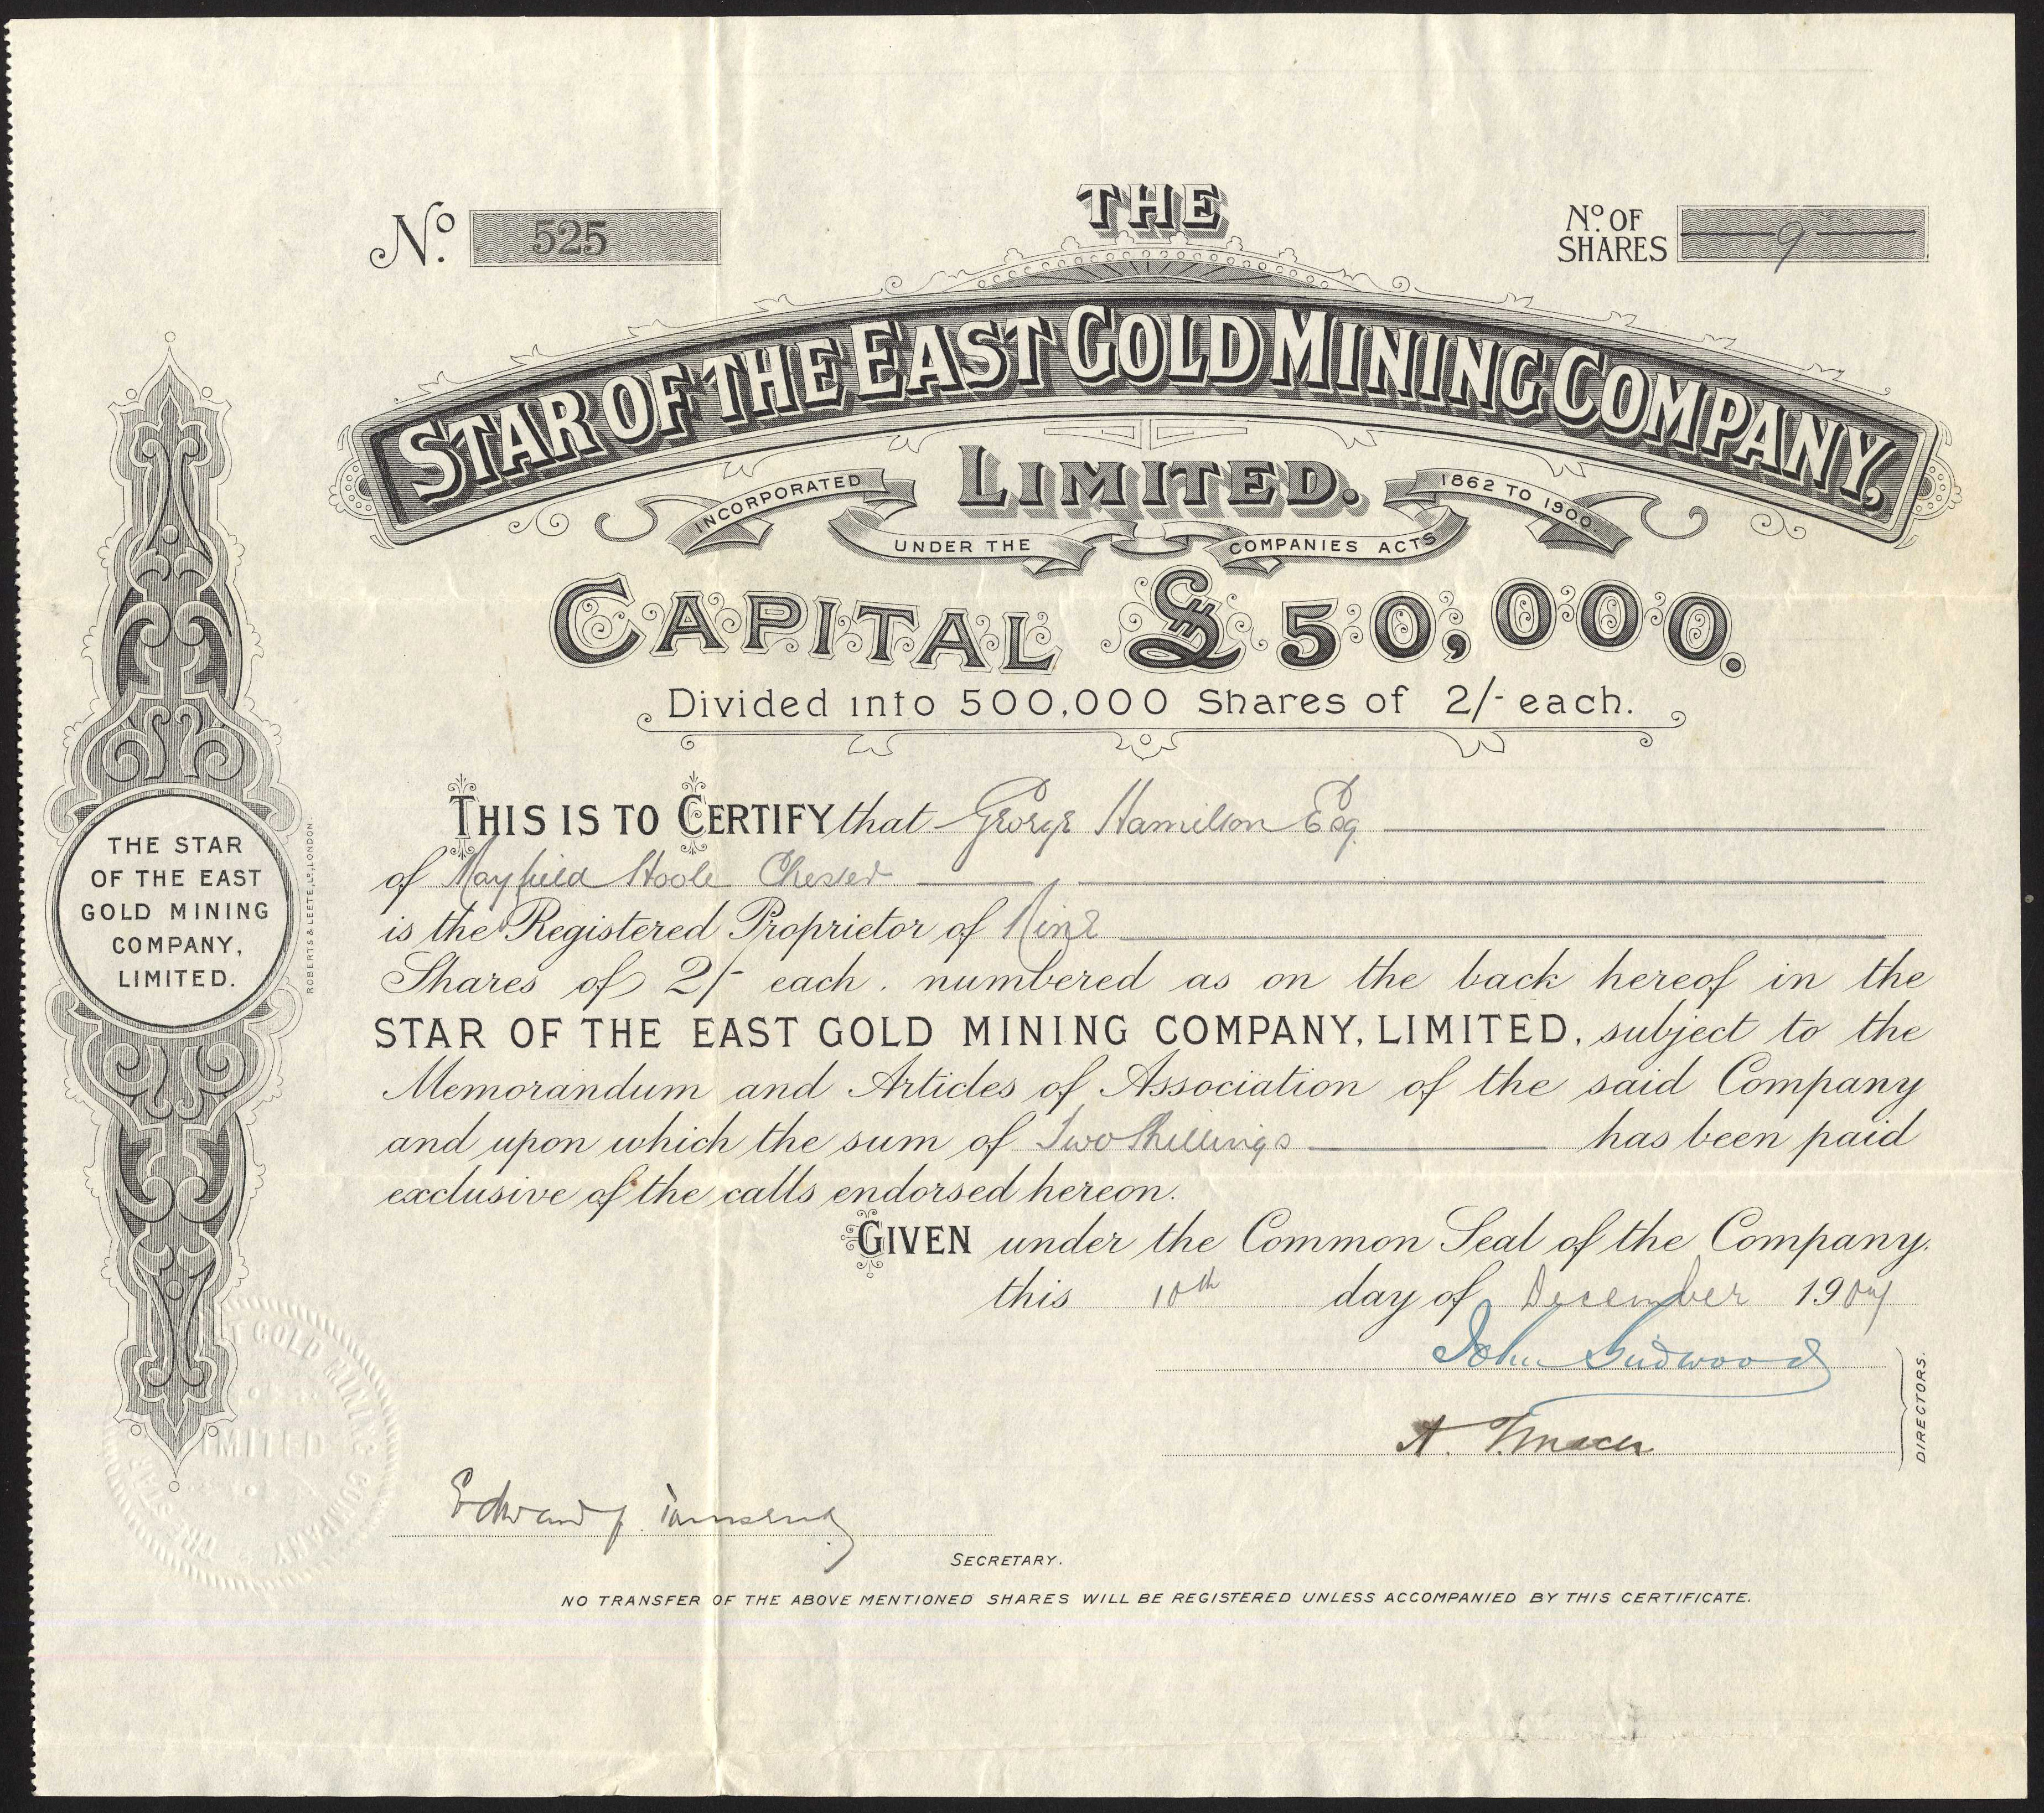 THE
No. 525
No. OF SHARES 9
STAR OF THE EAST GOLD MINING COMPANY,
LIMITED.
INCORPORATED UNDER THE COMPANIES ACTS 1862 TO 1900.
CAPITAL £50,000.
Divided into 500,000 Shares of 2/- each.
THIS IS TO CERTIFY that George Hamilton Esq.
of Mayfield Hoole Chester
is the Registered Proprietor of Nine
Shares of 2/- each, numbered as on the back hereof in the
STAR OF THE EAST GOLD MINING COMPANY, LIMITED, subject to the
Memorandum and Articles of Association of the said Company
and upon which the sum of Two Shillings has been paid
exclusive of the calls endorsed hereon.
GIVEN under the Common Seal of the Company.
this 10th day of December 190
John
A.
DIRECTORS.
Edward J. Townsend
SECRETARY.
NO TRANSFER OF THE ABOVE MENTIONED SHARES WILL BE REGISTERED UNLESS ACCOMPANIED BY THIS CERTIFICATE.
THE STAR
OF THE EAST
GOLD MINING
COMPANY,
LIMITED.
ROBERTS & LEETE, LD, LONDON.
THE STAR GOLD MINING COMPANY
LIMITED